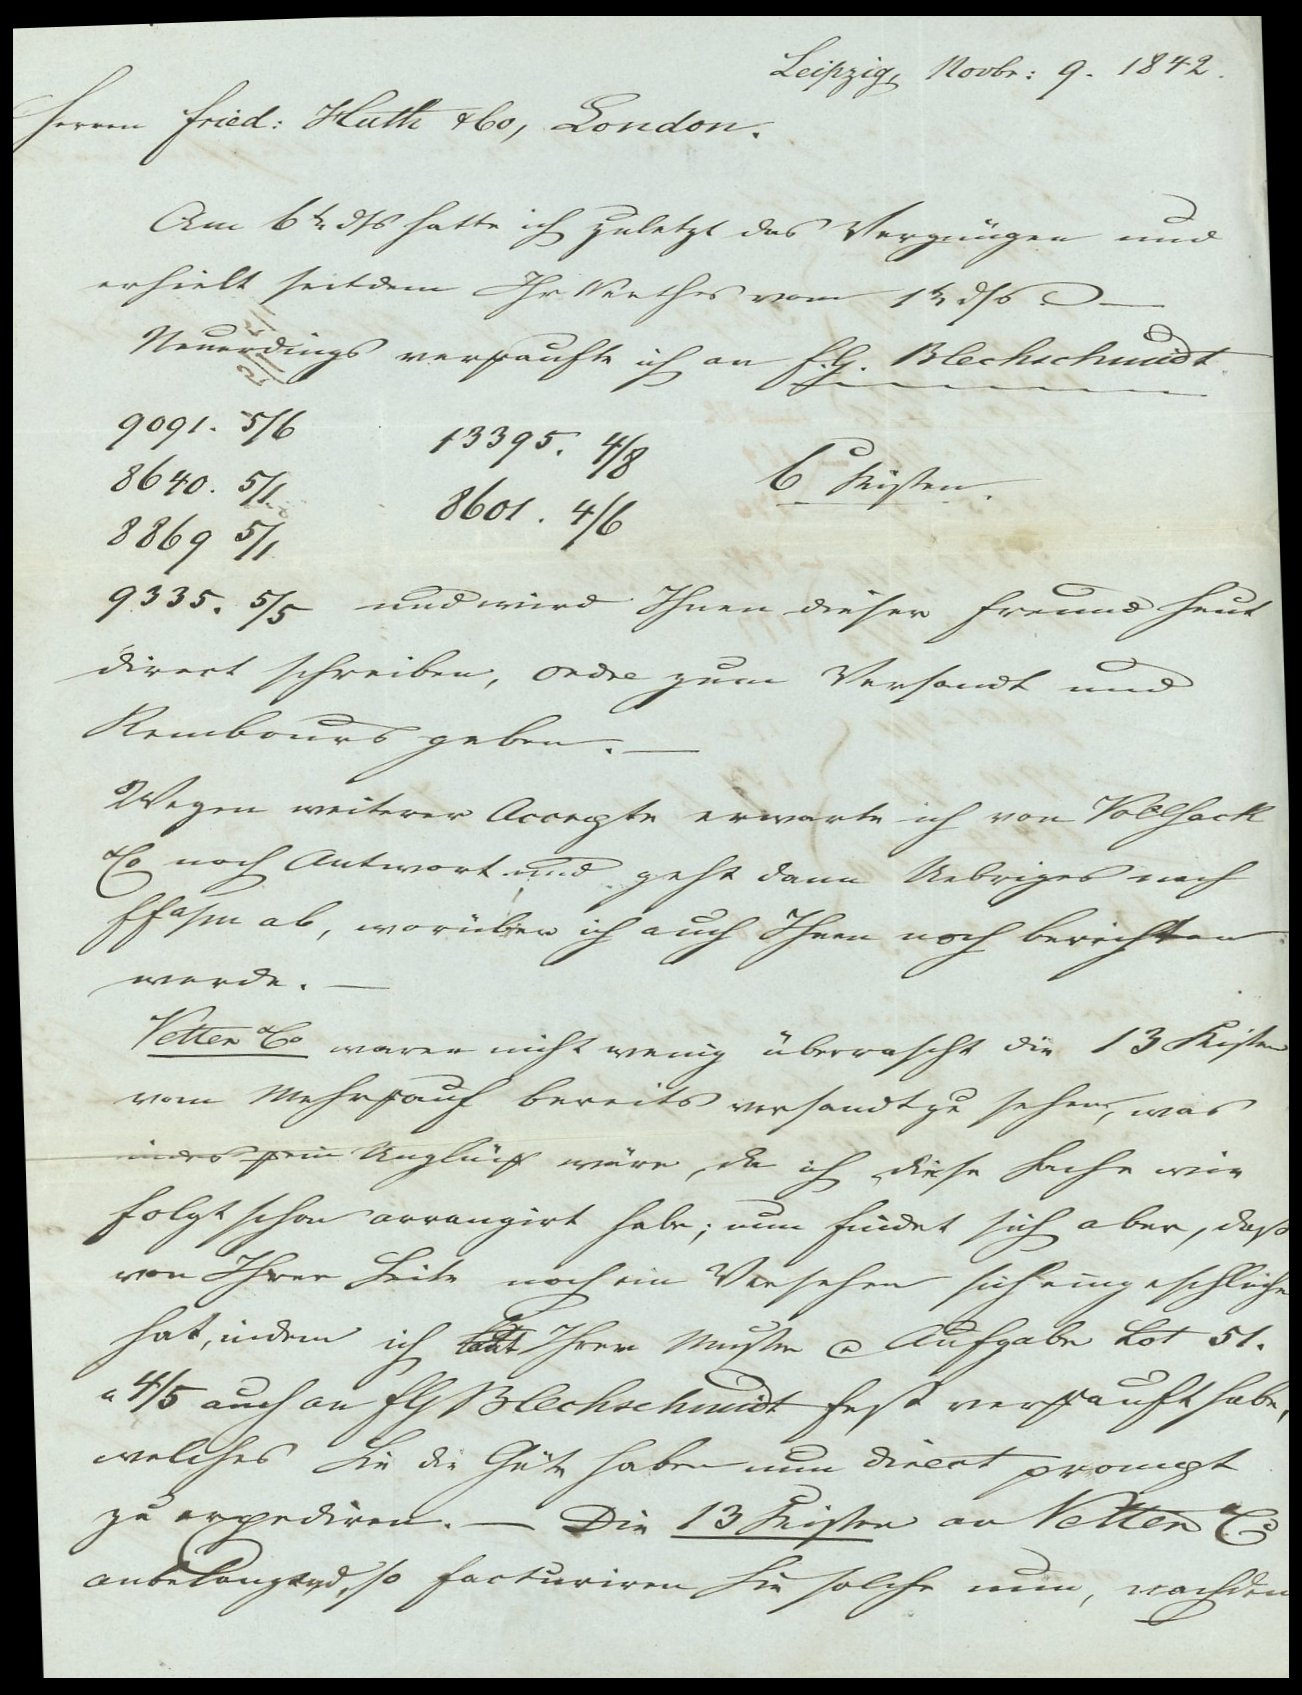 Leipzig, Novbr: 9. 1842.
Herren Fried: Huth & Co, London.
Am 6t. dss hatte ich zuletzt das Vergnügen und
erhielt seitdem Ihr Werthes vom 1t. dss
Neuerdings verkaufte ich an F.G. Blechschmidt
9091. 5/6
13395. 4/8
8640. 5/1
8601. 4/6
6 Kisten.
8869 5/1
9335. 5/5 und wird Ihnen dieser Freund heut
direct schreiben, Ordre zum Versandt und
Rembours geben. —
Wegen weiterer Accepte erwarte ich von Vollsack
& Co noch Antwort und geht dann Uebriges nach
Ffa/m ab, worüber ich auch Ihnen noch berichten
werde. —
Vetter & Co waren nicht wenig überrascht die 13 Kisten
vom Mehrkauf bereits versandt zu sehen, was
indes kein Unglück wäre, da ich diese Sache wie
folgt schon arrangirt habe; nun findet sich aber, daß
von Ihrer Seite noch ein Versehen sich eingeschlichen
hat, indem ich laut Ihrer Muster & Aufgabe Lot 51.
a 4/5 auch an FG Blechschmidt fest verkauft habe,
welches Sie die Güte haben nun direct prompt
zu expediren. — Die 13 Kisten an Vetter & Co
anbelangend, so facturiren Sie solche nun, nachdem